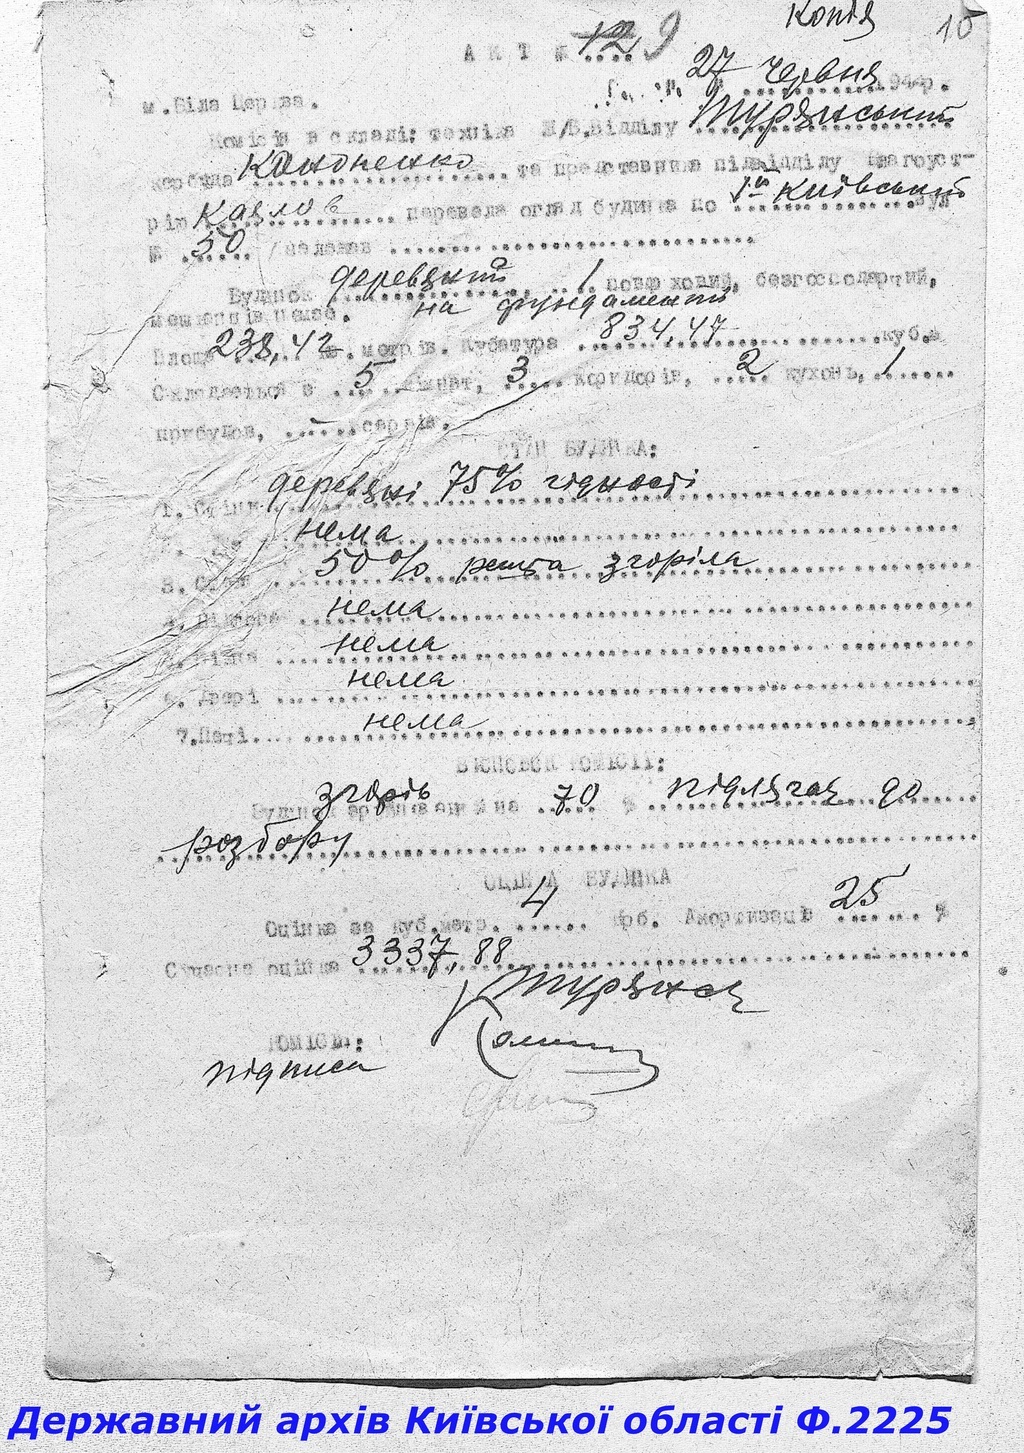 Копія
10
АКТ № 12 9
27 червня 1944р.
м.Біла Церква.
Комісія в складі: техніка Ж/В.Відділу Турянський
Кононенко та представника підвідділу благоуст-
рію Козлов перевела огляд будинка по 1й Київський вул
№ 50 /належав
Будинок деревяний 1 поверховий, безгосподарчий,
мешканців немає. на фундаменті
Площа 238,42 кв.метрів. Кубатура 834,47 куб.м
Складається з 5 кімнат, 3 коридорів, 2 кухонь, 1
прибудов, – сараїв.
СТАН БУДИНКА:
1. Стіни деревяні 75% гідності
нема
3. Стеля 50% решта згоріла
4. Підлога нема
5. Вікна нема
6. Двері нема
7.Печі нема
ВИСНОВОК КОМІСІЇ:
згорів
Будинок зруйнований на 70 % підлягає до
розбору
ОЦІНКА БУДИНКА
Оцінка за куб.метр. 4 крб. Амортизація 25 %
Сучасна оцінка 3337,88
КОМІСІЯ:
підписи
Державний архів Київської області Ф.2225